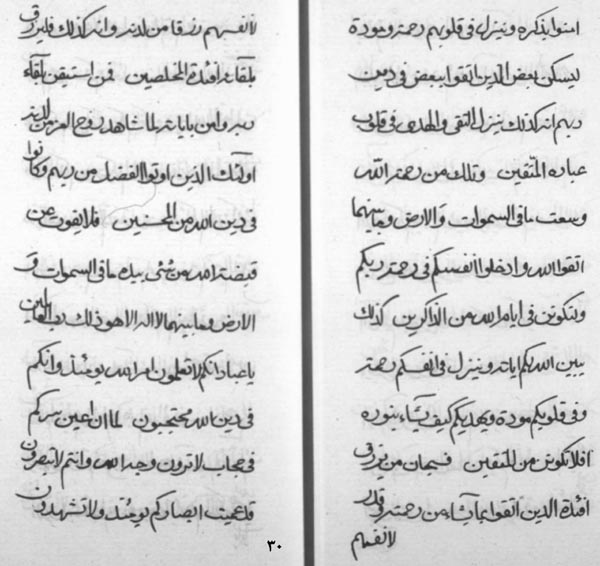 امنوا بذكره و ينزل في قلوبهم رحمة و مودة
ليسكن بعض الذين اتقوا ببعض في دين
ربهم انه كذلك ينزل التقى والهدى في قلوب
عباده المتقين وتلك من رحمة الله
وسعت ما في السموات والارض وما بينهما
اتقوا الله وادخلوا انفسكم في رحمة ربكم
ولتكونن في ايام الله من الذاكرين كذلك
يبين الله لكم اياته و ينزل في انفسكم رحمة
وفي قلوبكم مودة ويهديكم كيف يشاء بنوره
افلا تكونن من المتقين فسبحان من يرزق
افئدة الذين اتقوا بما يشاء من رحمته وقدر
لانفسهم
لانفسهم رزقا من لدنه وانه كذلك فليرزق
بلقائه افئدة المخلصين فمن استيقن بلقاء
ربه وامن باياته لما شاهد روح العز من لدنه
اولئك الذين اوتوا الفضل من ربهم وكانوا
في دين الله من المحسنين فلا يفوت عن
قبضة الله من شئ بيده ما في السموات و
الارض وما بينهما لا اله الا هو ذلك رب العالمين
يا عباد انكم لا تعلمون امر الله يومئذ وانكم
في دين الله محتجبون لما ان اعين سركم
في حجاب لا ترون وجه الله وانتم لا تبصرون
قد عميت ابصاركم يومئذ ولا تشهدون
٣٠